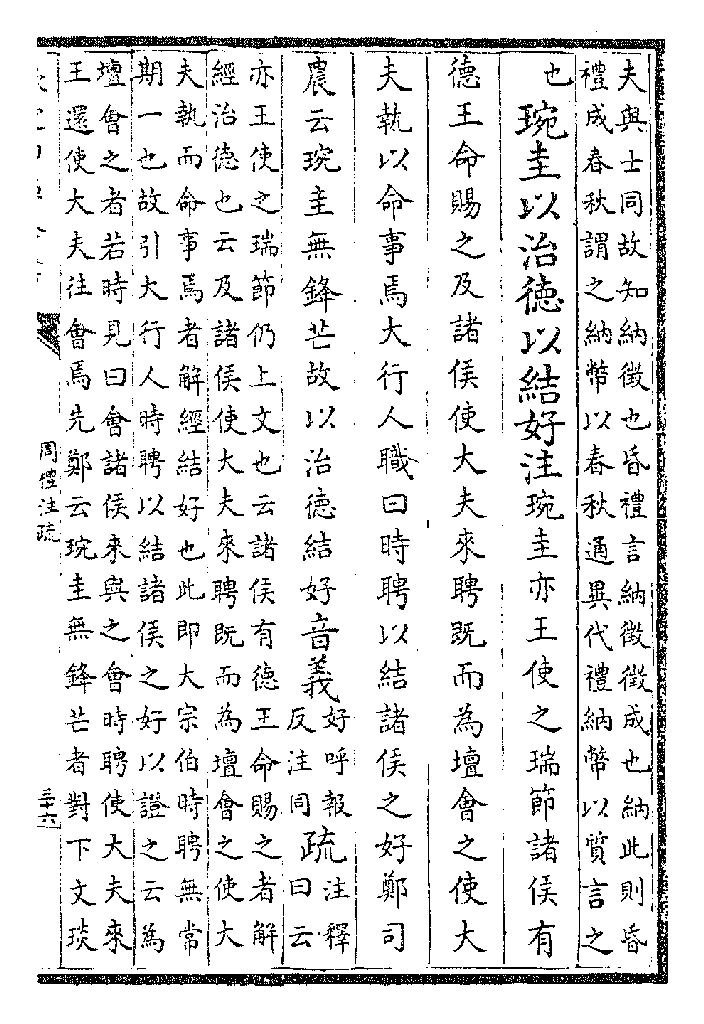 夫與士同故知納徵也昏禮言納徵徵成也納此則昏
禮成春秋謂之納幣以春秋通異代禮納幣以質言之
也琬圭以治德以結好注琬圭亦王使之瑞節諸侯有
德王命賜之及諸侯使大夫來聘既而為壇會之使大
夫執以命事焉大行人職曰時聘以結諸侯之好鄭司
農云琬圭無鋒芒故以治德結好音義好呼報
反注同疏注釋
曰云
亦王使之瑞節仍上文也云諸侯有德王命賜之者解
經治德也云及諸侯使大夫來聘既而為壇會之使大
夫執而命事焉者解經結好也此即大宗伯時聘無常
期一也故引大行人時聘以結諸侯之好以證之云為
壇會之者若時見曰會諸侯來與之會時聘使大夫來
王還使大夫往會焉先鄭云琬圭無鋒芒者對下文琰
周禮注疏
三十六